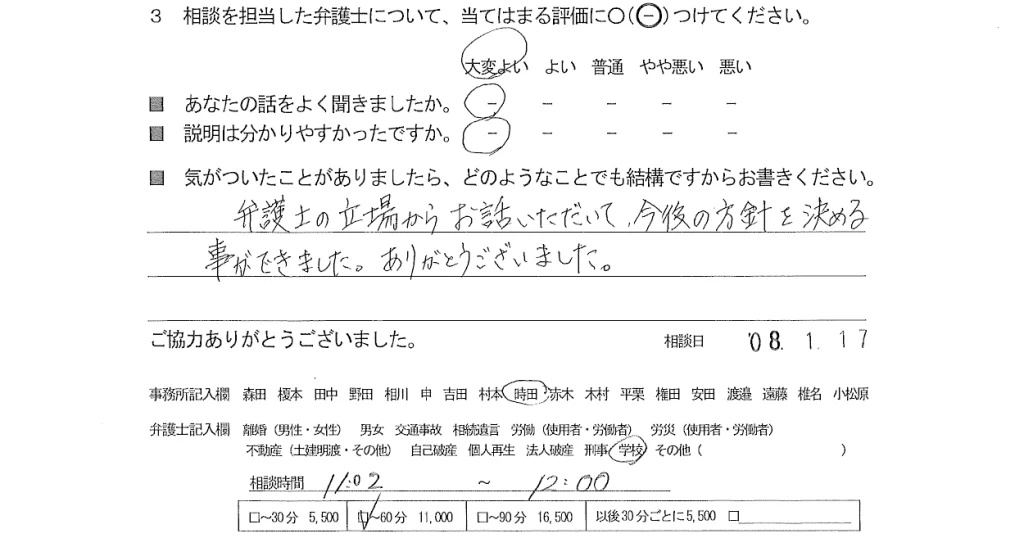 3 相談を担当した弁護士について、当てはまる評価に○(㊀)つけてください。
大変よい よい 普通 やや悪い 悪い
■ あなたの話をよく聞きましたか。 － － － － －
■ 説明は分かりやすかったですか。 － － － － －
■ 気がついたことがありましたら、どのようなことでも結構ですからお書きください。
弁護士の立場からお話いただいて、今後の方針を決める
事ができました。ありがとうございました。
ご協力ありがとうございました。 相談日 '08. 1. 17
事務所記入欄 森田 榎本 田中 野田 相川 申 吉田 村本 時田 赤木 木村 平栗 権田 安田 渡邉 遠藤 椎名 小松原
弁護士記入欄 離婚（男性・女性） 男女 交通事故 相続遺言 労働（使用者・労働者） 労災（使用者・労働者）
不動産（土建明渡・その他） 自己破産 個人再生 法人破産 刑事 学校 その他（ ）
相談時間 11:02 ～ 12:00
□～30分 5,500 □～60分 11,000 □～90分 16,500 以後30分ごとに5,500 □